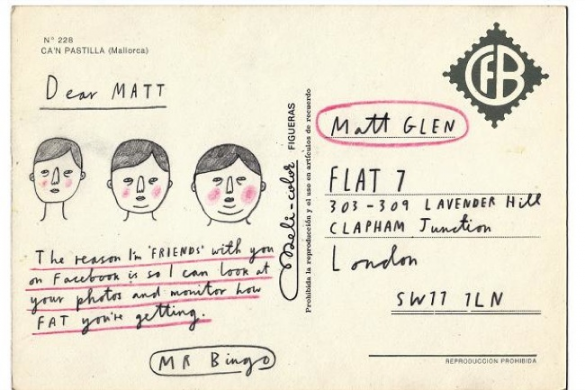 Nº 228
CA'N PASTILLA (Mallorca)
Dear MATT
The reason I'm 'FRIENDS' with you
on Facebook is so I can look at
your photos and monitor how
FAT you're getting.
MR Bingo
Deli-color FIGUERAS
Prohibida la reproducción y el uso en artículos de recuerdo
CFB
Matt GLEN
FLAT 7
303-309 LAVENDER Hill
CLAPHAM Junction
London
SW11 1LN
REPRODUCCIÓN PROHIBIDA